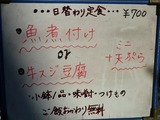 …日替わり定食… ¥700
・魚煮付け
or
・牛スジ豆腐
ミニ
+天ぷら
・小鉢1品・味噌汁・つけもの
ご飯おかわり無料